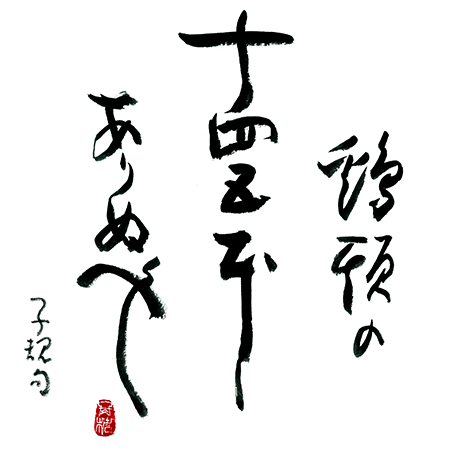 鶏頭の
十四五本
ありぬべし
子規句